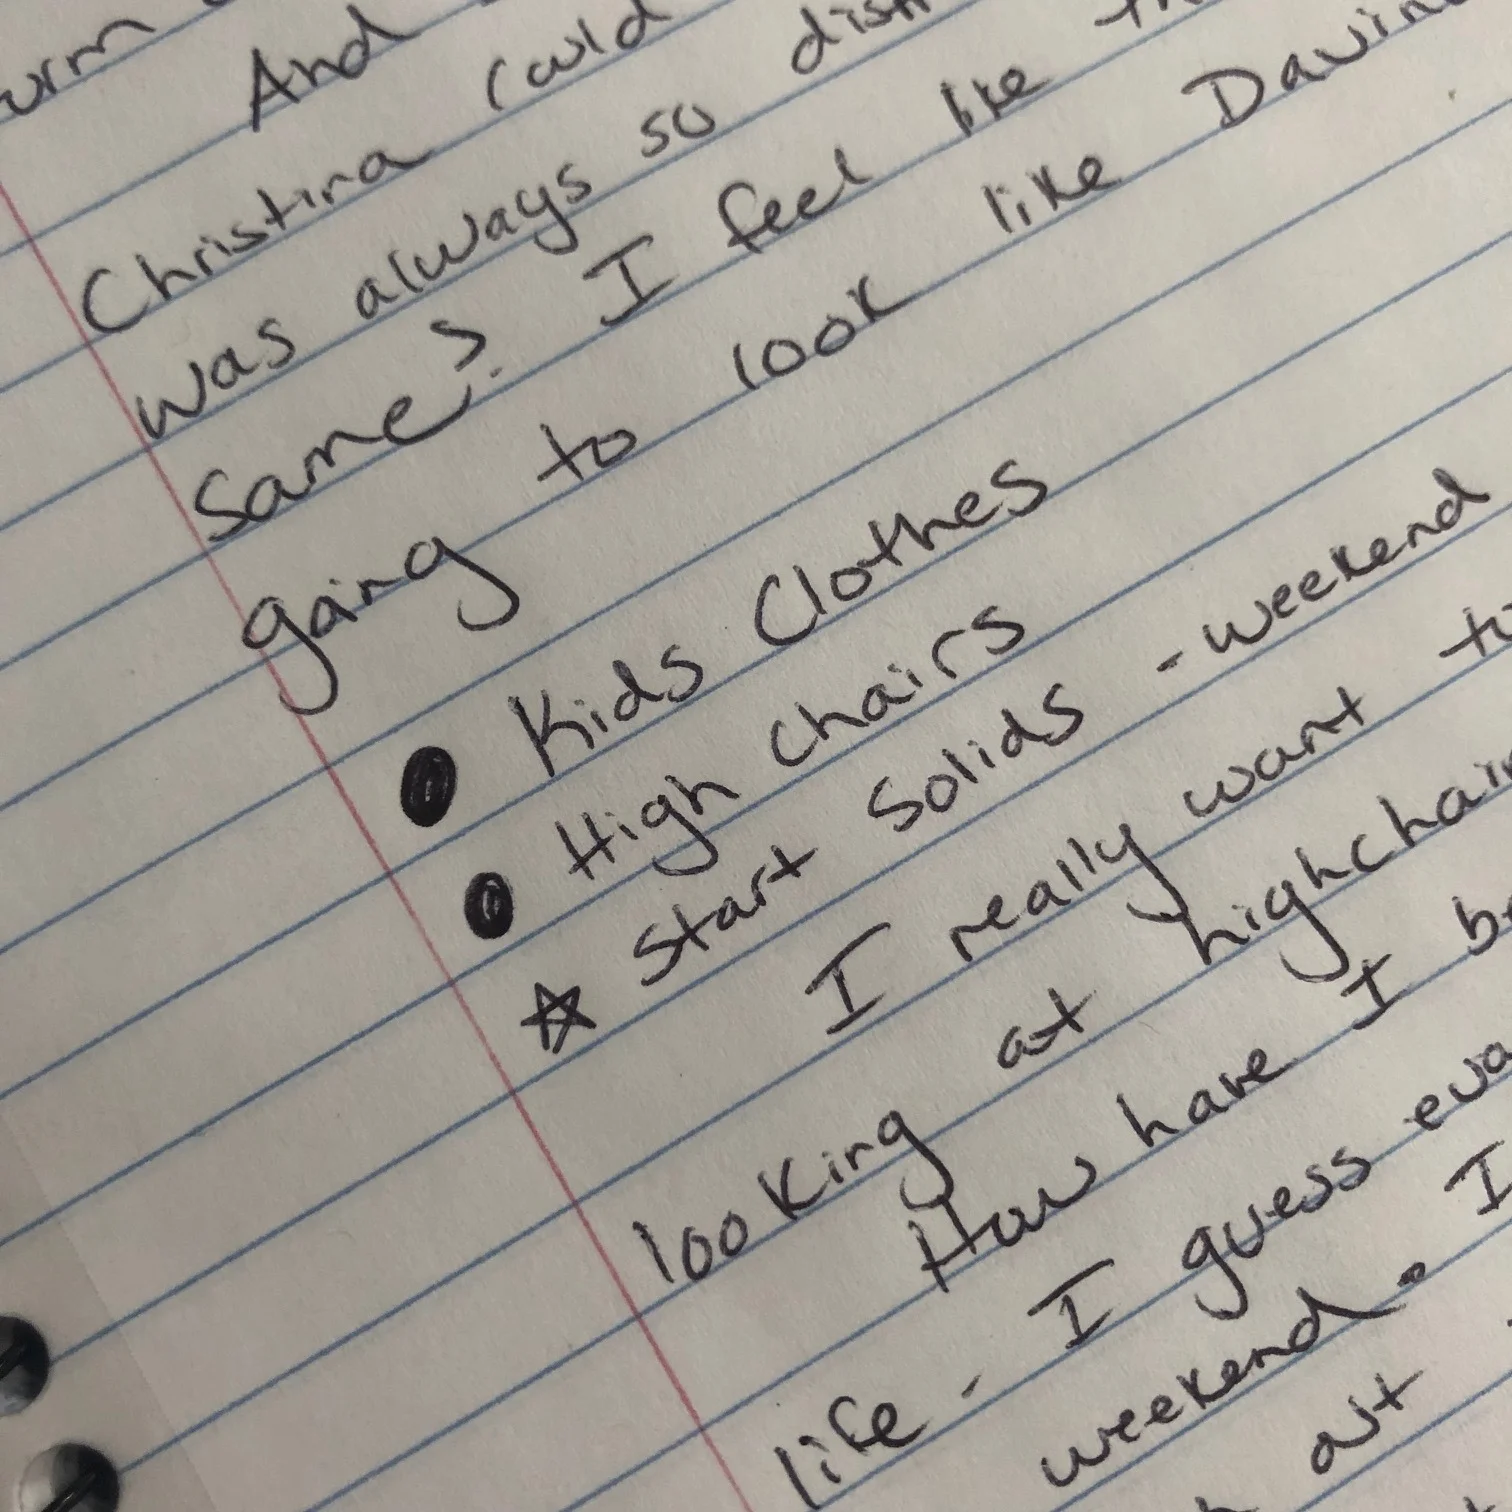 And
Christina could
was always so
same? I feel like
going to look like
Kids Clothes
High chairs
Start Solids - weekend
I really want
looking at
How have I
life - I guess
weekend. I